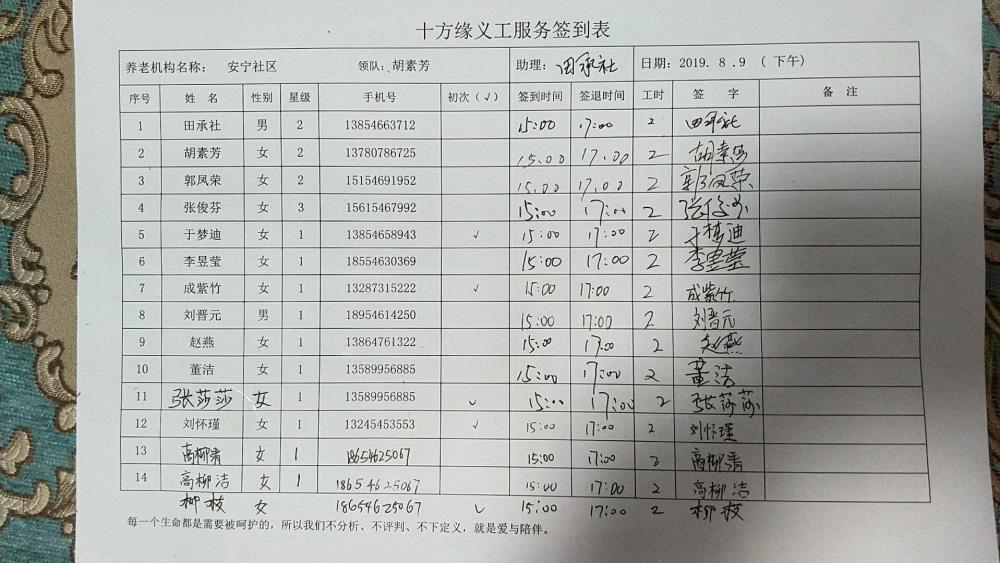 十方缘义工服务签到表
养老机构名称： 安宁社区 领队：胡素芳 助理：田承社 日期：2019．8．9 （下午）
序号 姓 名 性别 星级 手机号 初次（√） 签到时间 签退时间 工时 签 字 备 注
1 田承社 男 2 13854663712 15:00 17:00 2 田承社
2 胡素芳 女 2 13780786725 15.00 17.00 2 胡素芳
3 郭凤荣 女 2 15154691952 15.00 17.00 2 郭凤荣
4 张俊芬 女 3 15615467992 15:00 17:00 2 张俊芬
5 于梦迪 女 1 13854658943 √ 15:00 17:00 2 于梦迪
6 李昱莹 女 1 18554630369 15:00 17:00 2 李昱莹
7 成紫竹 女 1 13287315222 √ 15:00 17:00 2 成紫竹
8 刘晋元 男 1 18954614250 15:00 17:00 2 刘晋元
9 赵燕 女 1 13864761322 15:00 17:00 2 赵燕
10 董洁 女 1 13589956885 15:00 17:00 2 董洁
11 张莎莎 女 1 13589956885 √ 15:00 17:00 2 张莎莎
12 刘怀瑾 女 1 13245453553 √ 15:00 17:00 2 刘怀瑾
13 高柳清 女 1 18654625067 15:00 17:00 2 高柳清
14 高柳洁 女 1 18654625067 15:00 17:00 2 高柳洁
柳枝 女 18654625067 √ 15:00 17:00 2 柳枝
每一个生命都是需要被呵护的，所以我们不分析、不评判、不下定义，就是爱与陪伴。